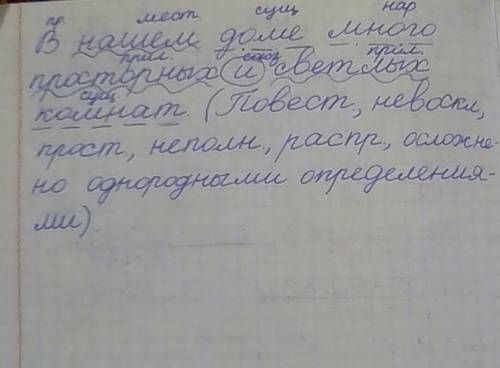 пр. мест. сущ нар
В нашем доме много
прил. союз прил.
просторных и светлых
сущ.
комнат. (Повест, невоскл,
прост, неполн, распр, осложне-
но однородными определения-
ми).